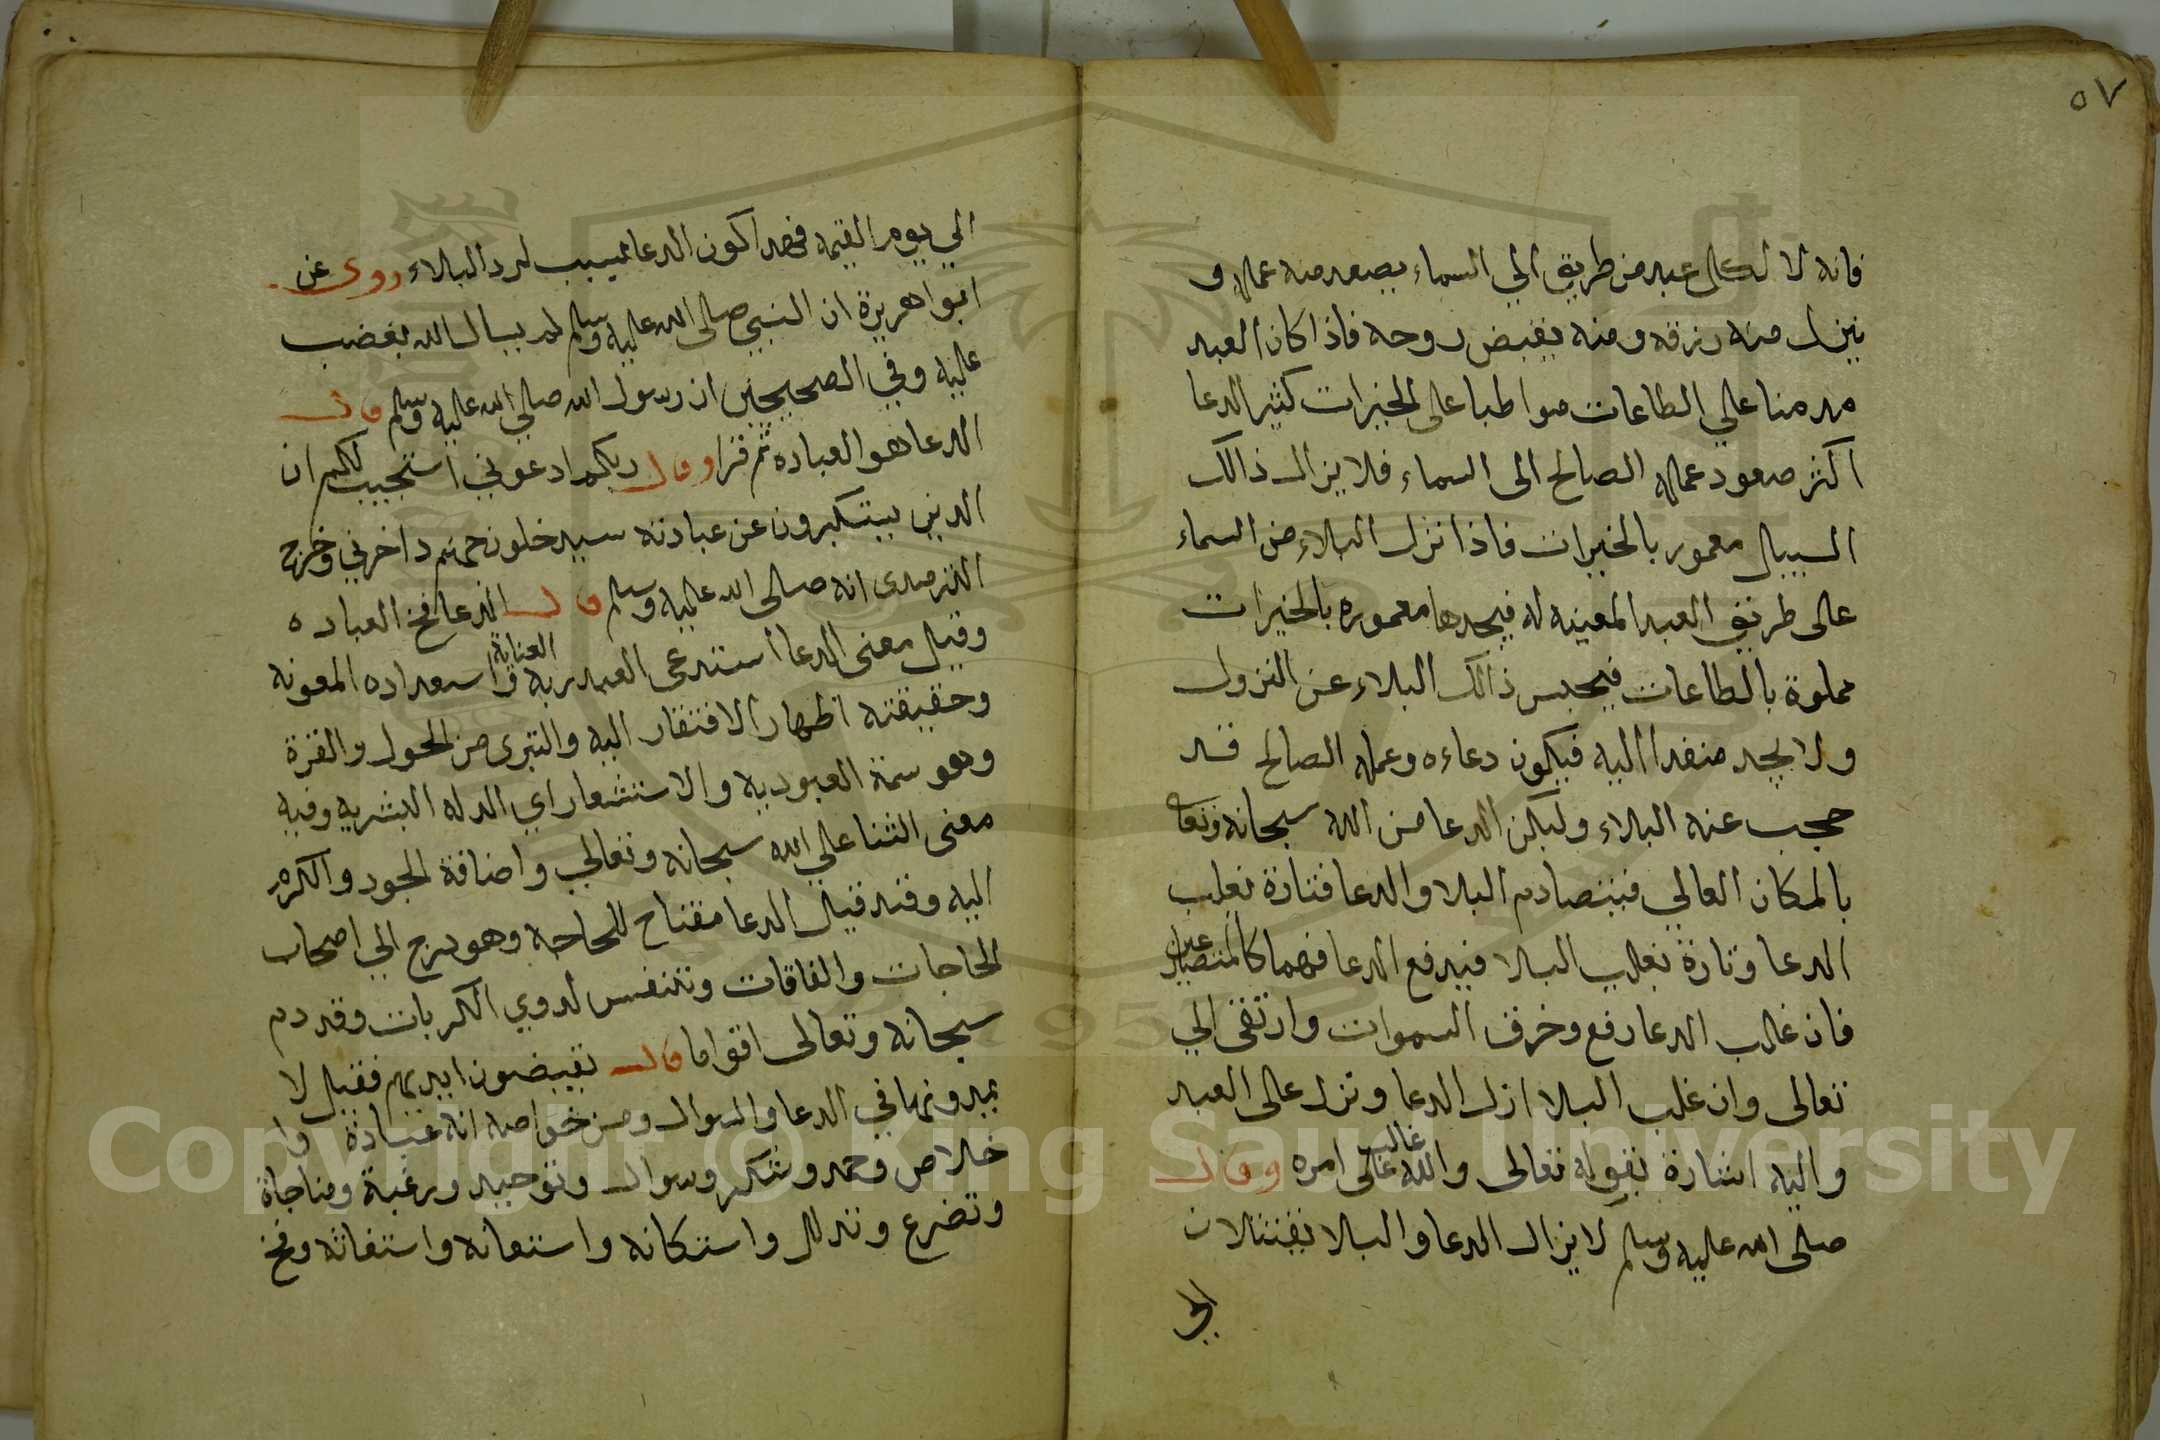 ٥٧
فانه لا لكل عبد من طريق الي السماء يصعد منه عمله و
ينزل منه رزقه ومنه يقبض روحه فاذا كان العبد
مدمنا علي الطاعات مواطبا على الخيرات كثير الدعا
اكثر صعود عمله الصالح الى السماء فلا يزال ذالك
السبيل معمور بالخيرات فاذا نزل البلاء من السماء
على طريق العبد المعينه له فيجدها معموره بالخيرات
مملوة بالطاعات فيحبس ذالك البلاء عن النزول
ولا يجد منفدا اليه فيكون دعاءه وعمله الصالح قد
حجب عنه البلاء وليكن الدعا من الله سبحانه وتعا
بالمكان العالي فيتصادم البلا والدعا فتارة تغلب
الدعا وتارة تغلب البلا فيدفع الدعا فهما كالمتصارعين
فان غلب الدعا رفع وخرق السموات وارتقى الي
تعالى وان غلب البلا ازل الدعا ونزل على العبد
واليه اشارة بقوله تعالى والله غالب على امره وقال
صلى الله عليه وسلم لا يزال الدعا والبلا يقتتلان
الي
الي يوم القيمه فصدا كون الدعا ميسبب لرد البلاء روى عن
ابوا هريرة ان النبي صلى الله عليه وسلم لم يسال الله يغضب
عليه وفي الصحيحين ان رسول الله صلي الله عليه وسلم قال
الدعا هو العباده ثم قرا وقال ربكم ادعوني استجيب لكم ان
الدين يستكبرون عن عبادته سيدخلون جهنم داخرني وخرج
الترمدى انه صلى الله عليه وسلم قال الدعا مخ العباده
وقيل معنى الدعا استدعى العبد ربه العناية و استعداده المعونه
وحقيقته اظهار الافتقار اليه والتبرى من الحول والقرة
وهو سمة العبوديه والاستشعار اي الدله البشريه وفيه
معنى الثنا علي الله سبحانه وتعالي واضافة الجود والكرم
اليه وقد قيل الدعا مفتاح للحاجه وهو درج الي اصحاب
الحاجات والفاقات وتنفس لدوي الكربات وقد دم
سبحانه وتعالى اقواما قال يقبضون ايديهم فقيل لا
يمدونها في الدعا والسوال ومن خواصه انه عبادة وا
خلاص وحمد وشكر وسوال وتوحيد ورغبة ومناجاة
وتضرع وتدلل واستكانه واستعانه واستغاثه ومخ
Copyright © King Saud University